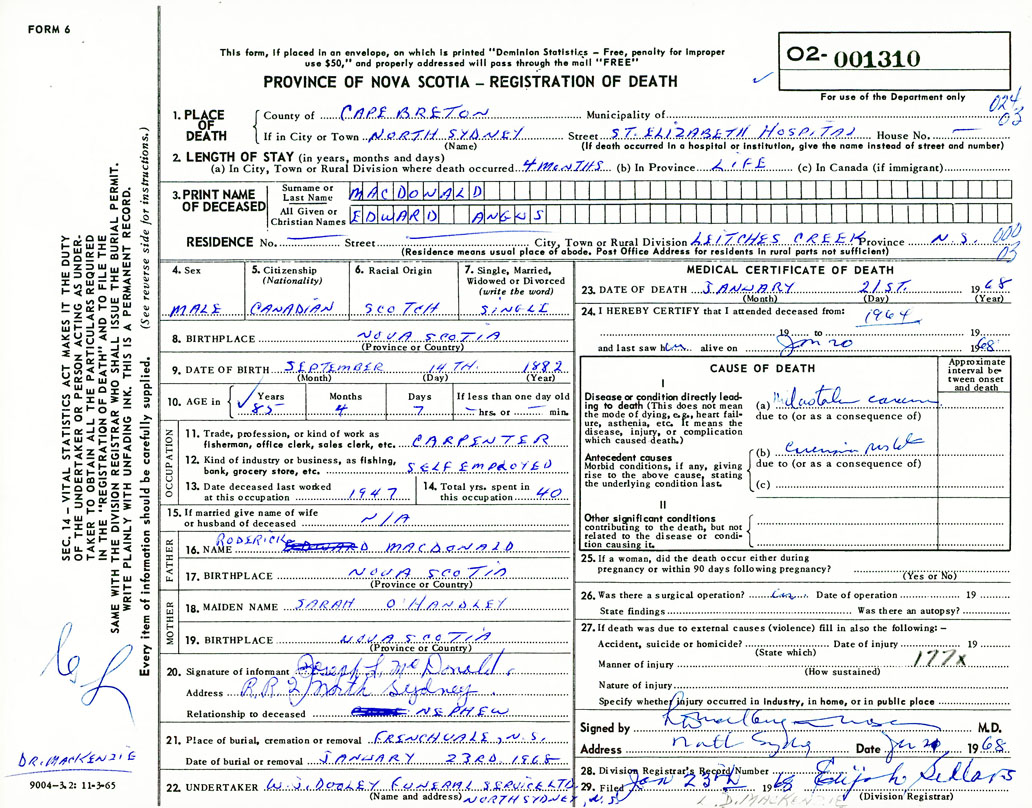 FORM 6
This form, if placed in an envelope, on which is printed "Dominion Statistics – Free, penalty for improper
use $50," and properly addressed will pass through the mail "FREE"
PROVINCE OF NOVA SCOTIA – REGISTRATION OF DEATH
02-001310
For use of the Department only
024
03
SEC. 14 – VITAL STATISTICS ACT MAKES IT THE DUTY
OF THE UNDERTAKER OR PERSON ACTING AS UNDER-
TAKER TO OBTAIN ALL THE PARTICULARS REQUIRED
IN THE "REGISTRATION OF DEATH" AND TO FILE THE
SAME WITH THE DIVISION REGISTRAR WHO SHALL ISSUE THE BURIAL PERMIT.
WRITE PLAINLY WITH UNFADING INK. THIS IS A PERMANENT RECORD.
Every item of information should be carefully supplied. (See reverse side for instructions.)
1. PLACE OF DEATH County of CAPE BRETON Municipality of
If in City or Town NORTH SYDNEY Street ST. ELIZABETH HOSPITAL House No. —
(Name) (If death occurred in a hospital or institution, give the name instead of street and number)
2. LENGTH OF STAY (in years, months and days)
(a) In City, Town or Rural Division where death occurred 4 MONTHS (b) In Province LIFE (c) In Canada (if immigrant)
3. PRINT NAME OF DECEASED Surname or Last Name MACDONALD
All Given or Christian Names EDWARD ANGUS
RESIDENCE No. Street City, Town or Rural Division LEITCHES CREEK Province N.S. 000
03
(Residence means usual place of abode. Post Office Address for residents in rural parts not sufficient)
4. Sex 5. Citizenship (Nationality) 6. Racial Origin 7. Single, Married, Widowed or Divorced (write the word)
MALE CANADIAN SCOTCH SINGLE
8. BIRTHPLACE NOVA SCOTIA
(Province or Country)
9. DATE OF BIRTH SEPTEMBER 14TH. 1882
(Month) (Day) (Year)
10. AGE in Years Months Days If less than one day old
85 4 7 — hrs. or — min.
OCCUPATION
11. Trade, profession, or kind of work as
fisherman, office clerk, sales clerk, etc. CARPENTER
12. Kind of industry or business, as fishing,
bank, grocery store, etc. SELF EMPLOYED
13. Date deceased last worked
at this occupation 1947
14. Total yrs. spent in
this occupation 40
15. If married give name of wife
or husband of deceased N/A
FATHER
16. NAME RODERICK MACDONALD
17. BIRTHPLACE NOVA SCOTIA
(Province or Country)
MOTHER
18. MAIDEN NAME SARAH O'HANDLEY
19. BIRTHPLACE NOVA SCOTIA
(Province or Country)
20. Signature of informant Joseph L. McDonald.
Address R.R. 2 North Sydney.
Relationship to deceased NEPHEW
21. Place of burial, cremation or removal FRENCHVALE, N.S.
Date of burial or removal JANUARY 23RD. 1968
22. UNDERTAKER W.J. DOOLEY FUNERAL SERVICE LTD
(Name and address) NORTH SYDNEY, N.S.
DR. MACKENZIE
9004–3.2: 11-3-65
MEDICAL CERTIFICATE OF DEATH
23. DATE OF DEATH JANUARY 21ST. 1968
(Month) (Day) (Year)
24. I HEREBY CERTIFY that I attended deceased from: 1964
19 to 19
and last saw him alive on Jan 20 1968
CAUSE OF DEATH
Approximate interval between onset and death
I
Disease or condition directly lead-
ing to death (This does not mean
the mode of dying, e.g., heart fail-
ure, asthenia, etc. It means the
disease, injury, or complication
which caused death.)
(a)
due to (or as a consequence of)
Antecedent causes
Morbid conditions, if any, giving
rise to the above cause, stating
the underlying condition last.
(b)
due to (or as a consequence of)
(c)
II
Other significant conditions
contributing to the death, but not
related to the disease or condi-
tion causing it.
25. If a woman, did the death occur either during
pregnancy or within 90 days following pregnancy?
(Yes or No)
26. Was there a surgical operation? Date of operation 19
State findings Was there an autopsy?
27. If death was due to external causes (violence) fill in also the following:–
Accident, suicide or homicide? Date of injury 19
(State which) 177x
Manner of injury
(How sustained)
Nature of injury
Specify whether injury occurred in industry, in home, or in public place
Signed by M.D.
Address North Sydney Date Jan 1968
28. Division Registrar's Record Number
29. Filed Jan 23rd 1968 Elijah Sellars
(Division Registrar)
L. D. MACKENZIE